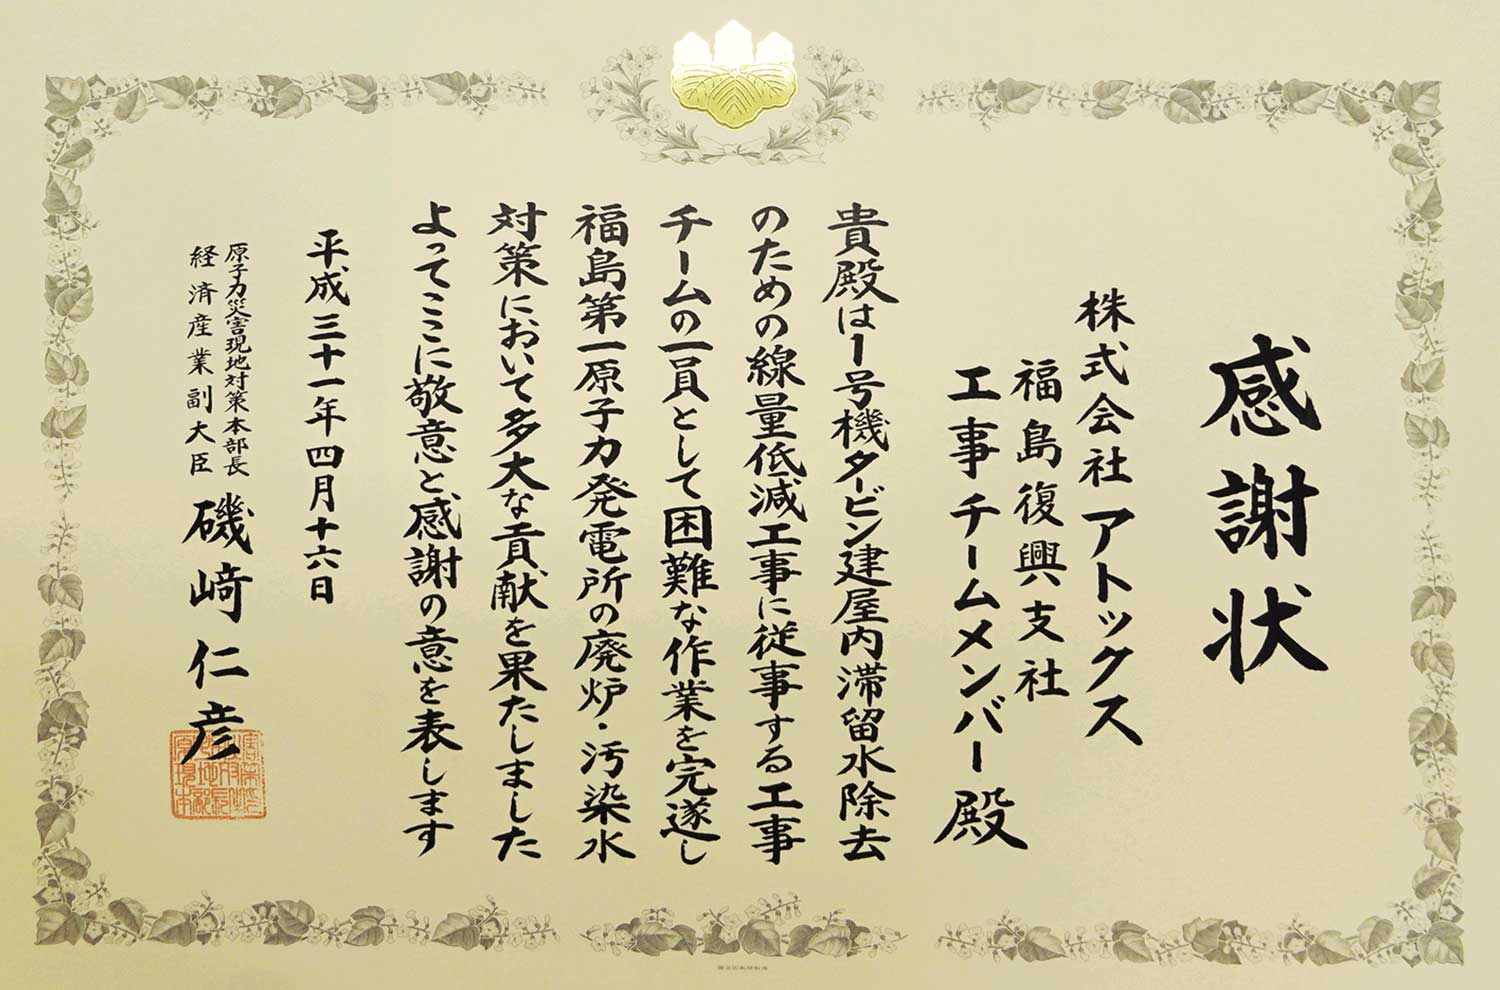 感謝状
株式会社アトックス
福島復興支社
工事チームメンバー殿
貴殿は1号機タービン建屋内滞留水除去
のための線量低減工事に従事する工事
チームの一員として困難な作業を完遂し
福島第一原子力発電所の廃炉・汚染水
対策において多大な貢献を果たしました
よってここに敬意と感謝の意を表します
平成三十一年四月十六日
原子力災害現地対策本部長
経済産業副大臣
磯﨑仁彦